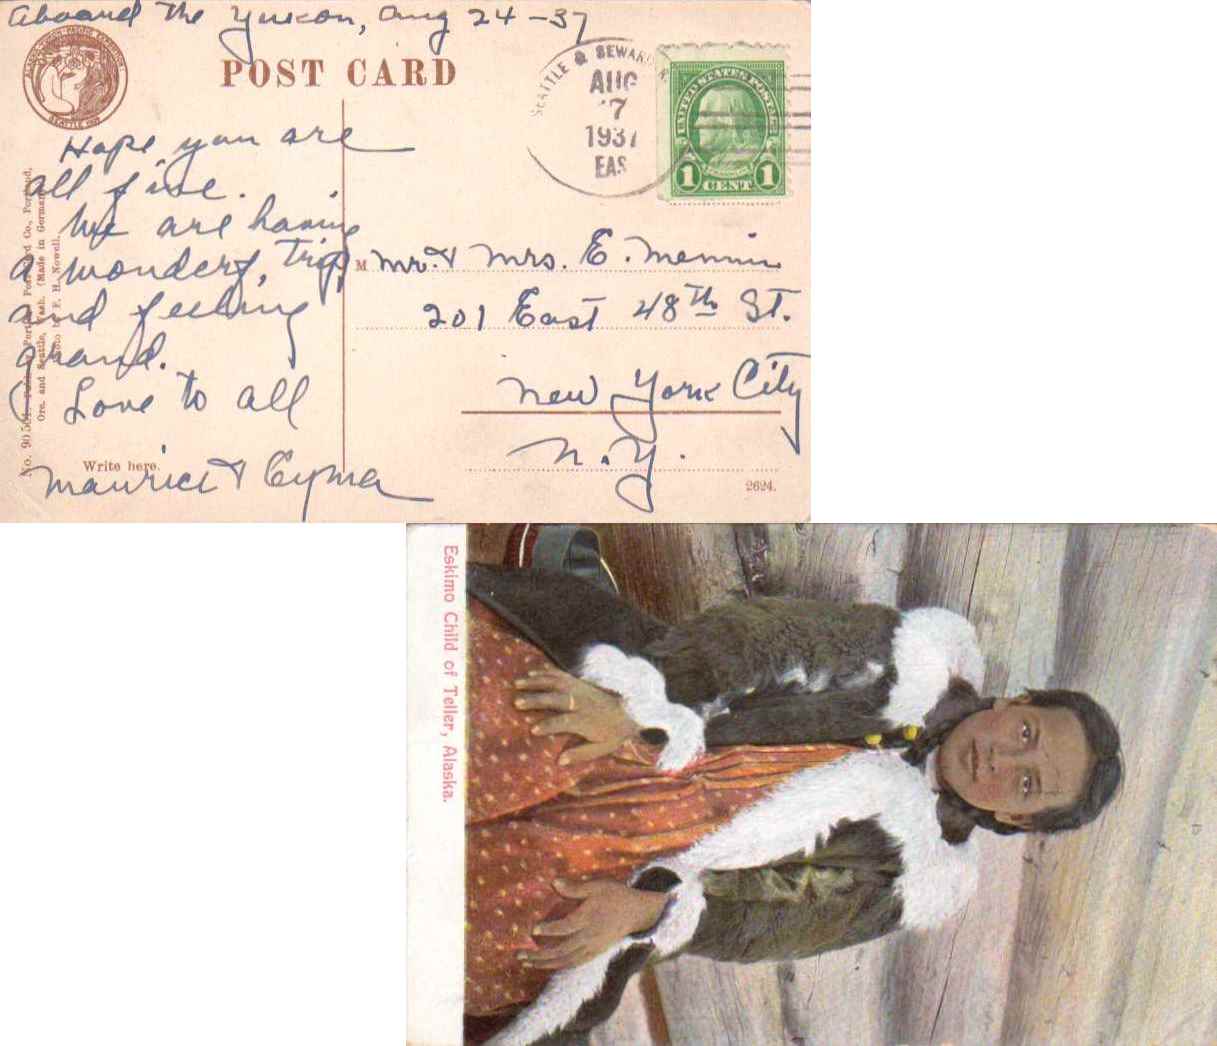 Aboard The Yukon, Aug 24-37
ALASKA-YUKON-PACIFIC EXPOSITION
SEATTLE 1909
POST CARD
SEATTLE & SEWARD
AUG
7
1937
EAS
UNITED STATES POSTAGE
1 CENT 1
Hope you are
all fine.
We are having
a wonderf. trip,
and feeling
grand.
Love to all
Maurice & Cyma
M Mr. & Mrs. E.
201 East 48th St.
New York City
N.Y.
No. 90 Portland Post Card Co., Portland,
Ore. and Seattle, Wash. (Made in Germany
Photo by F. H. Nowell.
Write here.
2624.
Eskimo Child of Teller, Alaska.